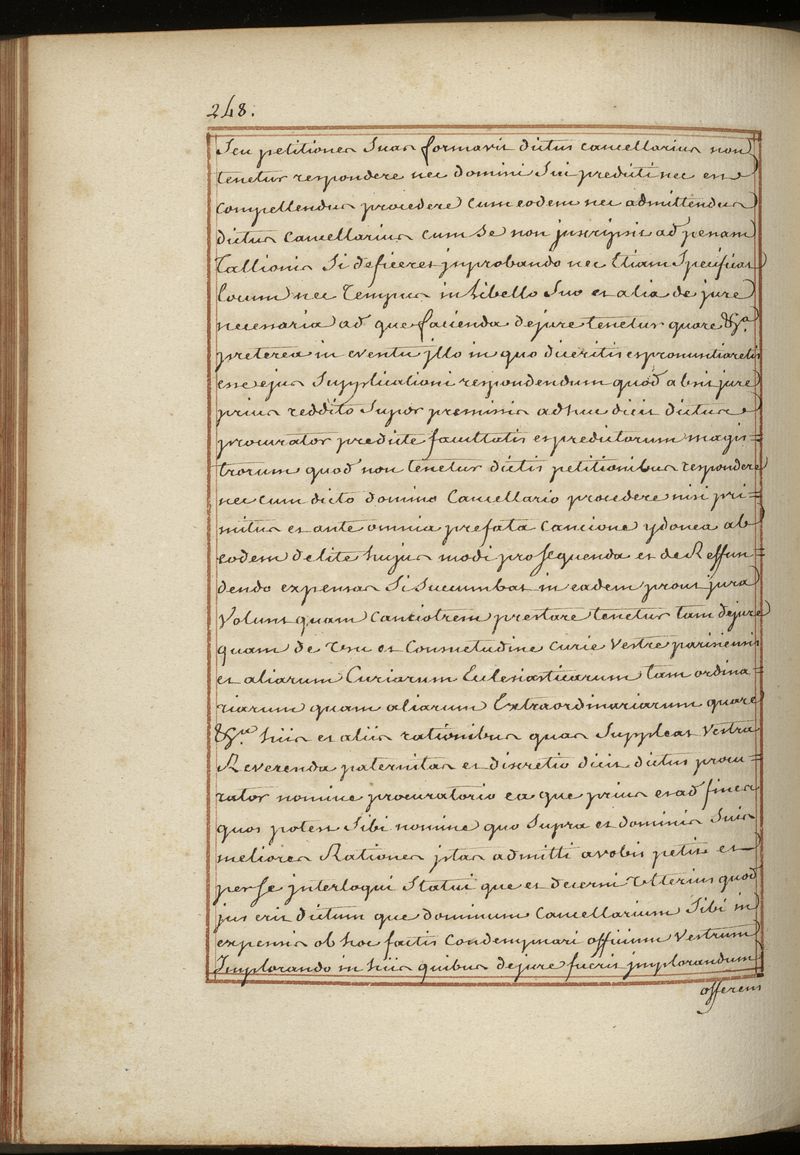 248.
Seu petitiones suas formavit dictus cancellarius non
tenetur respondere nec domini sui predicti nec est
compellendus procedere cum eodem nec admittendus
dictus cancellarius cum se non jnscripsit ad penam
Tallionis si deficeret jnprobando nec Etiam specificat
locum nec Tempus in libello suo et alia de jure
necessaria ad que facienda dejure tenetur quare &ca.
preterea in eventu jllo in quo diceritis et pronuntiaretis
esse ejus supplicationi respondendum quod absit jure
prius reddito super premissis adhuc dicit dictus
procurator predicte facultatis et predictorum magis=
trorum quod non tenetur dictis petitionibus respondere
nec cum dicto domino Cancellario procedere nisi pri=
mitus et ante omnia prefata Caucione ydonea ab
eodem de lite hujus modi prosequenda et de Reffun=
dendo expensas si succumbat in eadem prout jura
Volunt quam Cautiotrem prestare tenetur tam dejure
quam de Usu et Consuetudine curie Vestre parisiensis
et aliarum Curiarum Eclesiasticarum tam ordina=
riarum quam aliarum Extraordinariarum quare
&ca hiis et aliis rationibus quas suppleat Vestra
Reverenda paternitas et discretio dicit dictus procu=
rator nomine procuratorio ea que prius et ad fines
quos potest sibi nomine quo supra et dominis suis
meliores Rationes jstas admitti avobis petit et
per se jnterloqui statui que et decerni Ulterius quod
jus erit dictum que dominum Cancellarium sibi in
expensis ob hoc factis Condempnari officium Vestrum
Jmplorando in hiis quibus dejure fuerit jmplorandum
offerens